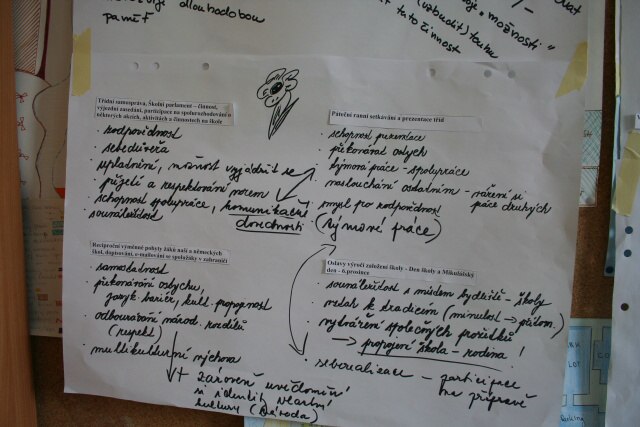 dlouhodobou
paměť
možnosti"
(vzbudit) touhu
tuto činnost
Třídní samospráva, Školní parlament – činnost,
výjezdní zasedání, participace na spolurozhodování o
některých akcích, aktivitách a činnostech na škole
· zodpovědnost
· sebedůvěra
· uplatnění, možnost vyjádřit se
· přijetí a respektování norem
· schopnost spolupráce, komunikační
sounáležitost dovednosti
Páteční ranní setkávání a prezentace tříd
· schopnost prezentace
· překonávat ostych
· týmová práce - spolupráce
· naslouchání ostatním - vážení si
práce druhých
· smysl pro zodpovědnost
(týmové práce)
Reciproční výměnné pobyty žáků naší a německých
škol, dopisování, e-mailování se spolužáky v zahraničí
· samostatnost
· překonávání ostychu,
jazyk. bariér, kult. propojenost
· odbourávání národ. rozdílů
(respekt)
· multikulturní výchova
+ zároveň uvědomění
si identity vlastní
kultury (národa)
Oslavy výročí založení školy - Den školy a Mikulášský
den - 6.prosince
· sounáležitost s místem bydliště - školy
· vztah k tradicím (minulost → přítom.)
· vytváření společných prožitků
→ propojení škola - rodina!
· seberealizace - participace
na přípravě
LOT
Parking